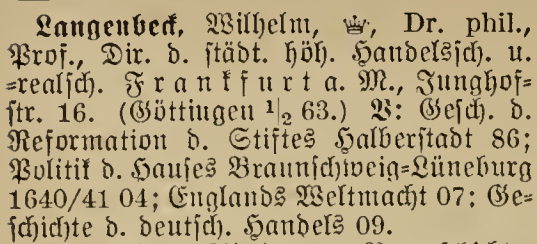 Langenbeck, Wilhelm, ♛, Dr. phil.,
Prof., Dir. d. städt. höh. Handelssch. u.
=realsch. Frankfurt a. M., Junghof=
str. 16. (Göttingen 1|2 63.) V: Gesch. d.
Reformation d. Stiftes Halberstadt 86;
Politik d. Hauses Braunschweig=Lüneburg
1640/41 04; Englands Weltmacht 07; Ge=
schichte d. deutsch. Handels 09.